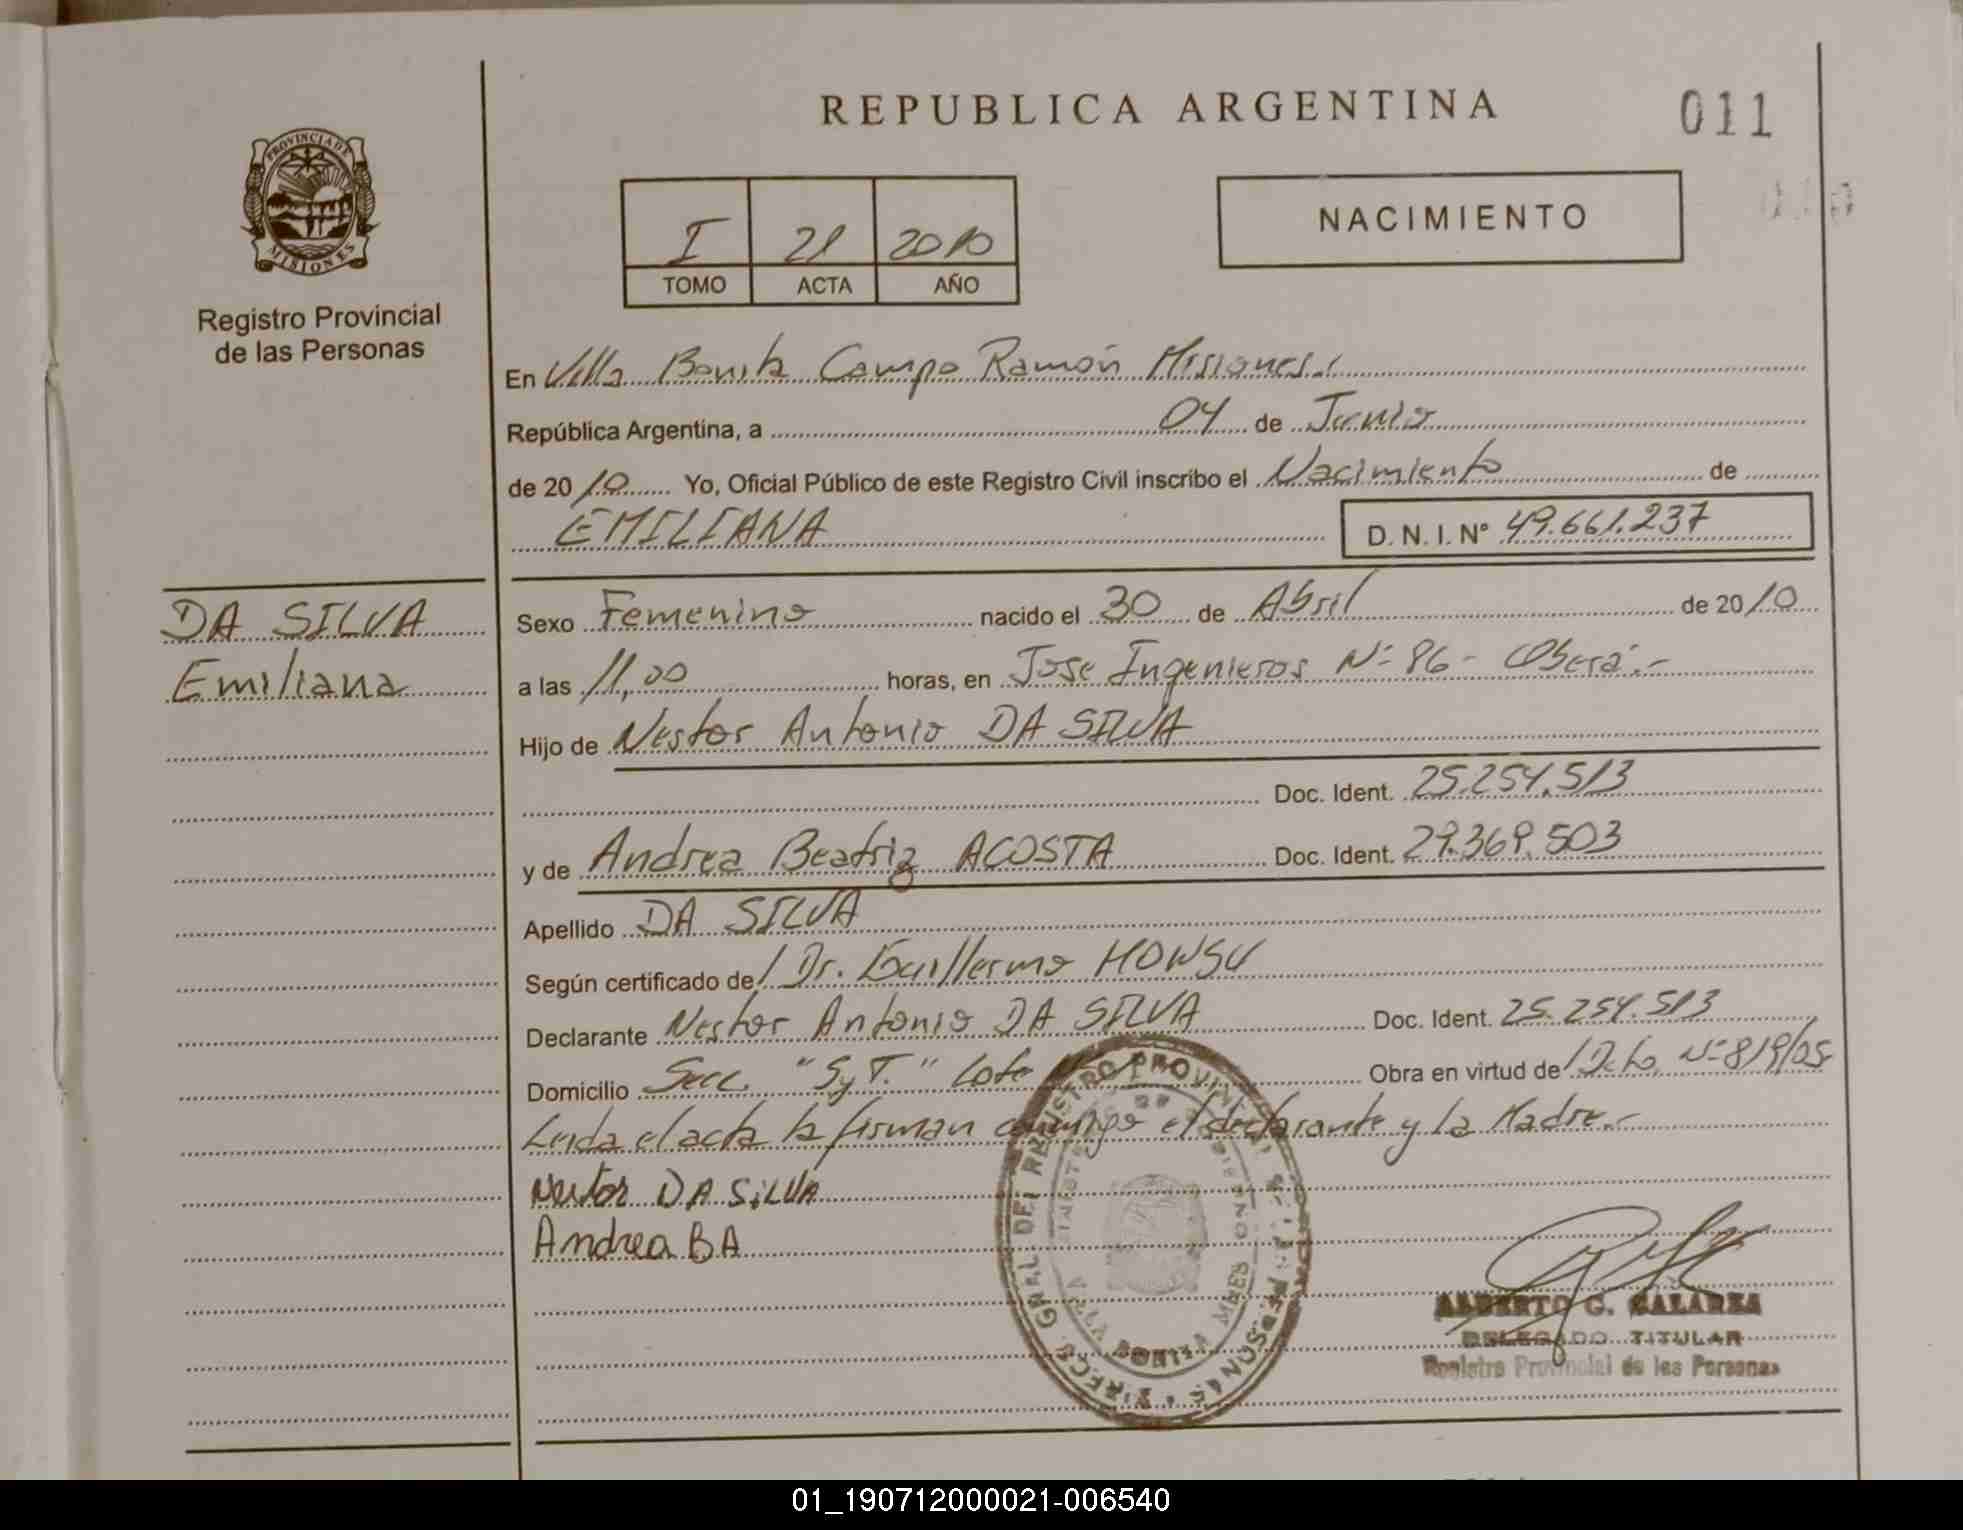 REPUBLICA ARGENTINA
011
PROVINCIA DE
MISIONES
Registro Provincial
de las Personas
I 21 2010
TOMO ACTA AÑO
NACIMIENTO
En Villa Bonita Campo Ramón Misiones.
República Argentina, a 04 de Junio
de 2010 Yo, Oficial Público de este Registro Civil inscribo el Nacimiento de
EMILIANA D. N. I. Nº 49.661.237
DA SILVA
Emiliana
Sexo Femenino nacido el 30 de Abril de 2010
a las 11,00 horas, en Jose Ingenieros Nº 86 - Oberá.-
Hijo de Nestor Antonio DA SILVA
Doc. Ident. 25.254.513
y de Andrea Beatriz ACOSTA Doc. Ident. 29.369.503
Apellido DA SILVA
Según certificado del Dr. Guillermo
Declarante Nestor Antonio DA SILVA Doc. Ident. 25.254.513
Domicilio Secc. "SyT." Lote Obra en virtud del Dcto. Nº 819/05
Leida el acta la firman conmigo el declarante y la Madre.-
Nestor DA SiLVA
Andrea BA
DIRECC. GRAL. DEL REGISTRO PROVINCIAL DE LAS PERSONAS
VILLA BONITA MNES
ALBERTO G. GALARZA
DELEGADO TITULAR
Registro Provincial de las Personas
01_190712000021-006540